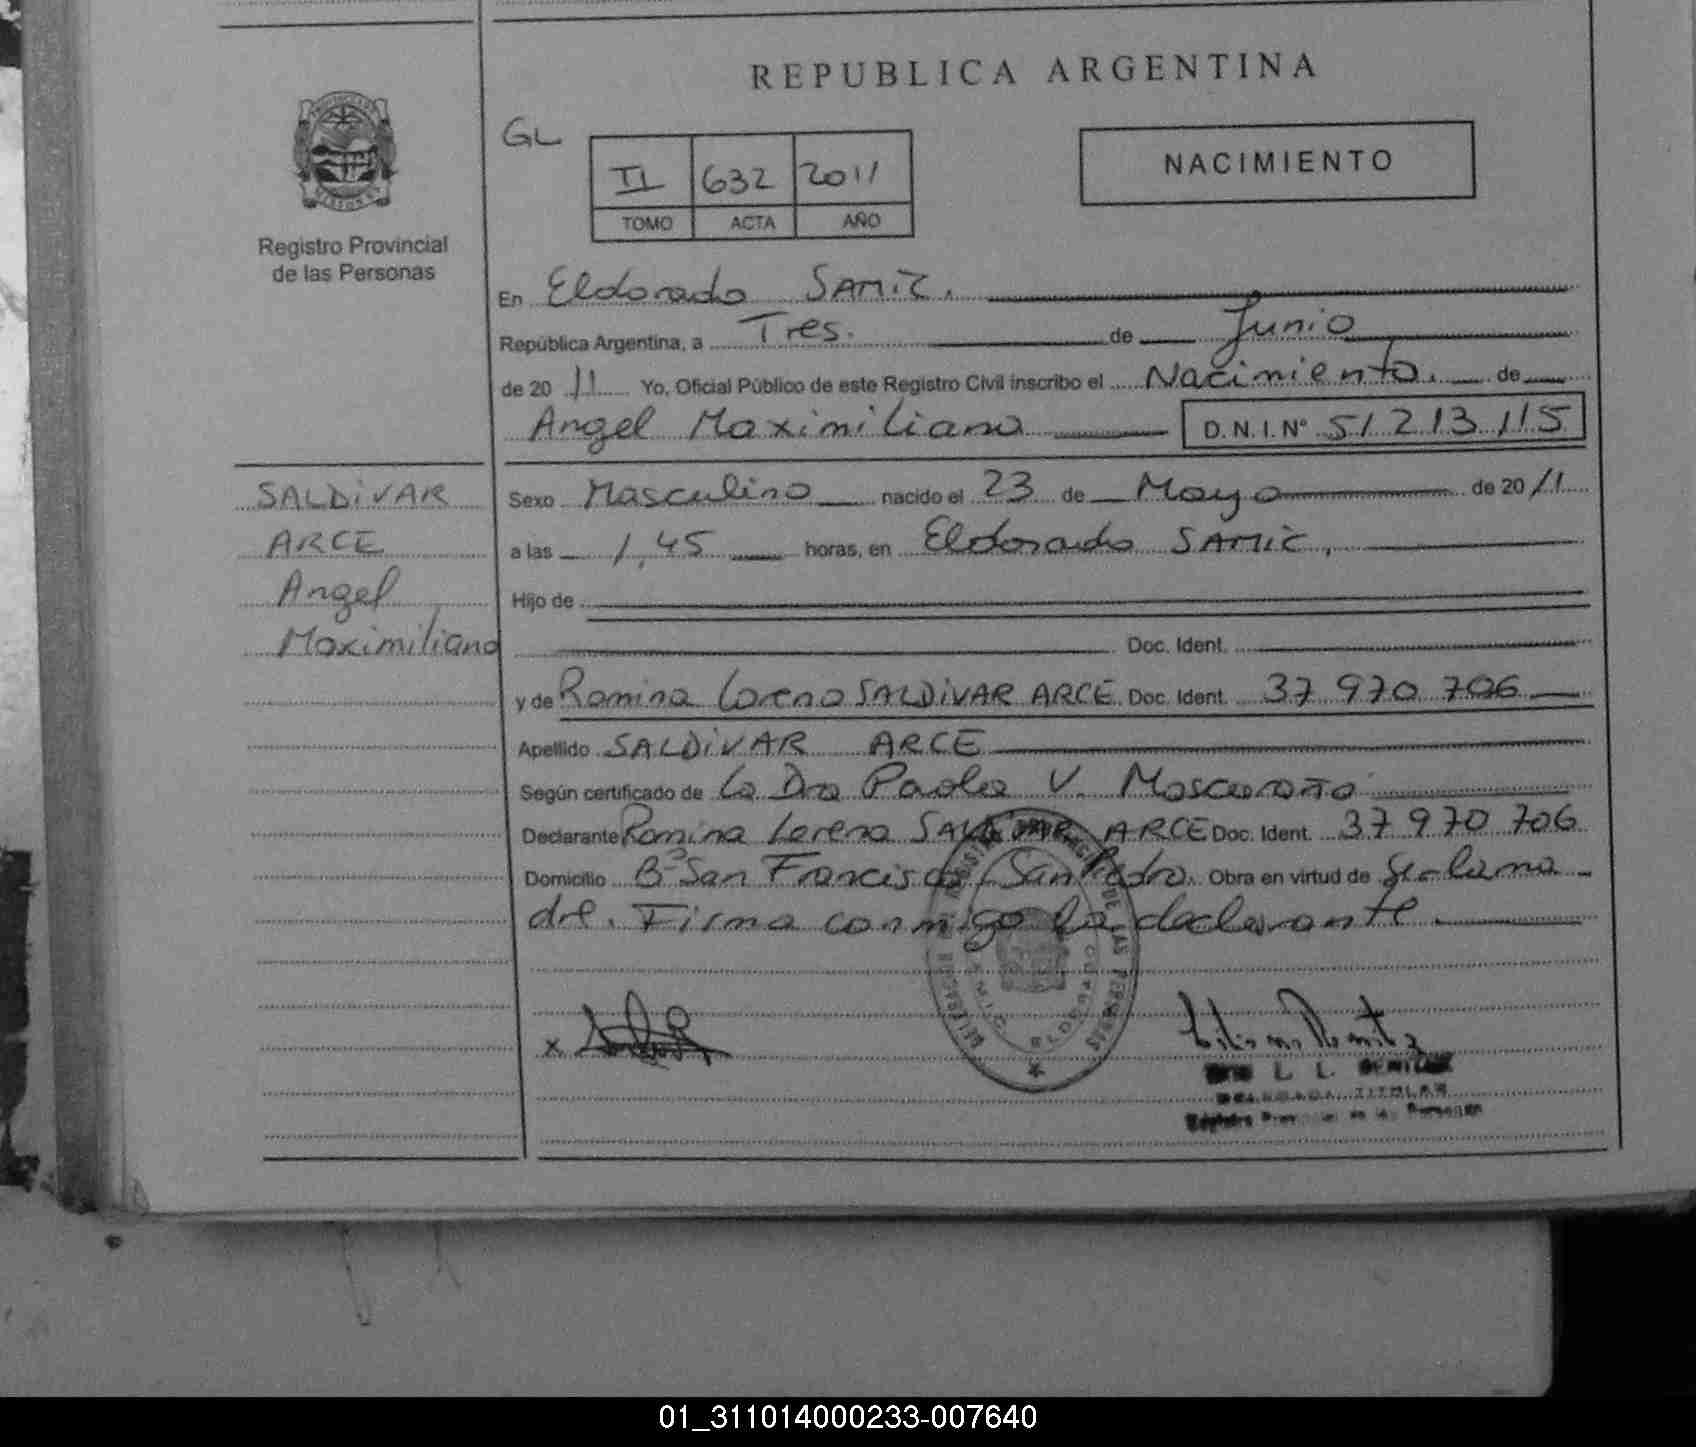 REPUBLICA ARGENTINA
GL
II 632 2011
TOMO ACTA AÑO
NACIMIENTO
Registro Provincial
de las Personas
En Eldorado SAMIC.
República Argentina, a Tres. de Junio
de 20 11 Yo, Oficial Público de este Registro Civil inscribo el Nacimiento. de
Angel Maximiliano D.N.I.Nº 51 213 115
SALDIVAR
ARCE
Angel
Maximiliano
Sexo Masculino nacido el 23 de Mayo de 20 11
a las 1,45 horas, en Eldorado SAMIC,
Hijo de
Doc. Ident.
y de Romina Lorena SALDIVAR ARCE Doc. Ident. 37 970 706
Apellido SALDIVAR ARCE
Según certificado de La Dra Paola V.
Declarante Romina Lorena SALDIVAR ARCE Doc. Ident. 37 970 706
Domicilio Bº San Francisco San Pedro. Obra en virtud de Ser la ma
dre. Firma conmigo la declarante.
x
DE LAS PERSONAS
ELDORADO
L. L. BENITEZ
DELEGADA TITULAR
Registro Provincial de las Personas
01_311014000233-007640